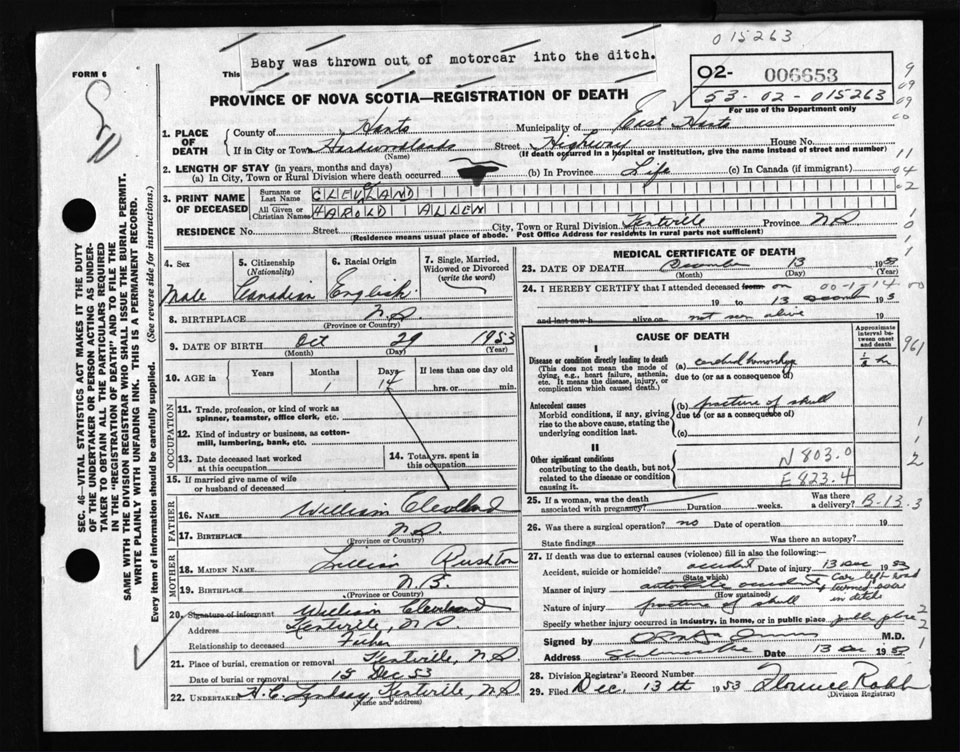 015263
Baby was thrown out of motorcar into the ditch.
FORM 6
This
02- 006653
53-02-015263
For use of the Department only
PROVINCE OF NOVA SCOTIA—REGISTRATION OF DEATH
1. PLACE OF DEATH
County of Hants Municipality of East Hants
If in City or Town Street Highway House No.
(Name) (If death occurred in a hospital or institution, give the name instead of street and number)
2. LENGTH OF STAY (in years, months and days)
(a) In City, Town or Rural Division where death occurred (b) In Province Life (c) In Canada (if immigrant)
3. PRINT NAME OF DECEASED
Surname or Last Name CLEVLAND
All Given or Christian Names HAROLD ALLEN
RESIDENCE No. Street City, Town or Rural Division Kentville Province N.S
(Residence means usual place of abode. Post Office Address for residents in rural parts not sufficient)
4. Sex Male
5. Citizenship (Nationality) Canadian
6. Racial Origin English
7. Single, Married, Widowed or Divorced (write the word)
8. BIRTHPLACE N.S.
(Province or Country)
9. DATE OF BIRTH Oct 29 1953
(Month) (Day) (Year)
10. AGE in Years Months Days If less than one day old
1 14 hrs. or min.
OCCUPATION
11. Trade, profession, or kind of work as spinner, teamster, office clerk, etc.
12. Kind of industry or business, as cotton-mill, lumbering, bank, etc.
13. Date deceased last worked at this occupation
14. Total yrs. spent in this occupation
15. If married give name of wife or husband of deceased
FATHER
16. NAME William Clevland
17. BIRTHPLACE N.S.
(Province or Country)
MOTHER
18. MAIDEN NAME Lillian Rushton
19. BIRTHPLACE N.B.
(Province or Country)
20. Signature of informant William Cleveland
Address Kentville, N.S.
Relationship to deceased Father
21. Place of burial, cremation or removal Kentville, N.S
Date of burial or removal 15 Dec 53
22. UNDERTAKER H. C. Lindsay, Kentville, N.S
(Name and address)
MEDICAL CERTIFICATE OF DEATH
23. DATE OF DEATH December 13 1953
(Month) (Day) (Year)
24. I HEREBY CERTIFY that I attended deceased from on
19 to 13 December 195
and last saw h alive on not seen alive
CAUSE OF DEATH
Approximate interval between onset and death
I
Disease or condition directly leading to death
(This does not mean the mode of dying, e.g., heart failure, asthenia, etc. It means the disease, injury, or complication which caused death.)
(a) cerebral hemorrhage ½ hr
due to (or as a consequence of)
Antecedent causes
Morbid conditions, if any, giving rise to the above cause, stating the underlying condition last.
(b) fracture of skull
due to (or as a consequence of)
(c)
II
Other significant conditions contributing to the death, but not related to the disease or condition causing it.
N 803.0
E 823.4
25. If a woman, was the death associated with pregnancy? Duration weeks. Was there a delivery? B-13.3
26. Was there a surgical operation? no Date of operation 19
State findings Was there an autopsy?
27. If death was due to external causes (violence) fill in also the following:—
Accident, suicide or homicide? accident Date of injury 13 Dec 1953
(State which)
Manner of injury automobile accident Car left road & turned over in ditch
(How sustained)
Nature of injury fracture of skull
Specify whether injury occurred in industry, in home, or in public place public place
Signed by M.D.
Address Shubenacadie Date 13 Dec 1953
28. Division Registrar's Record Number
29. Filed Dec. 13th 1953 Florence Robb
(Division Registrar)
SEC. 46—VITAL STATISTICS ACT MAKES IT THE DUTY
OF THE UNDERTAKER OR PERSON ACTING AS UNDER-
TAKER TO OBTAIN ALL THE PARTICULARS REQUIRED
IN THE "REGISTRATION OF DEATH" AND TO FILE THE
SAME WITH THE DIVISION REGISTRAR WHO SHALL ISSUE THE BURIAL PERMIT.
WRITE PLAINLY WITH UNFADING INK. THIS IS A PERMANENT RECORD.
Every item of information should be carefully supplied. (See reverse side for instructions.)